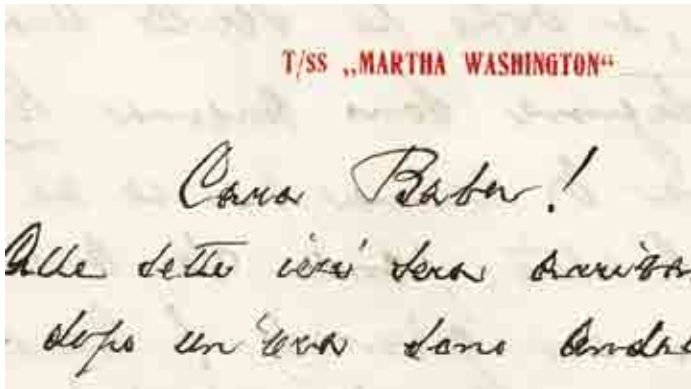 T/SS „MARTHA WASHINGTON“
Cara Baber!
Alle sette ieri sera arriva
dopo un'ora sono anda